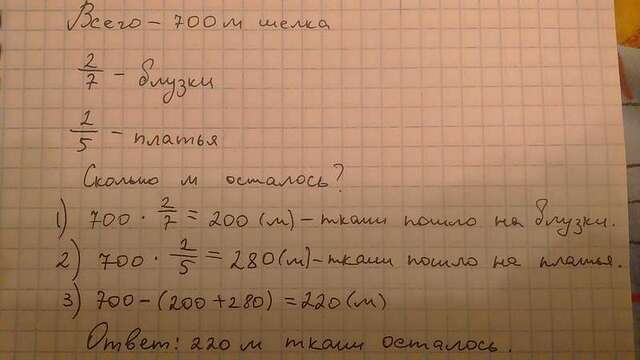 Всего - 700 м шелка
2/7 - блузки
2/5 - платья
Сколько м осталось?
1) 700 · 2/7 = 200 (м) - ткани пошло на блузки.
2) 700 · 2/5 = 280 (м) - ткани пошло на платья.
3) 700 - (200 + 280) = 220 (м)
Ответ: 220 м ткани осталось.